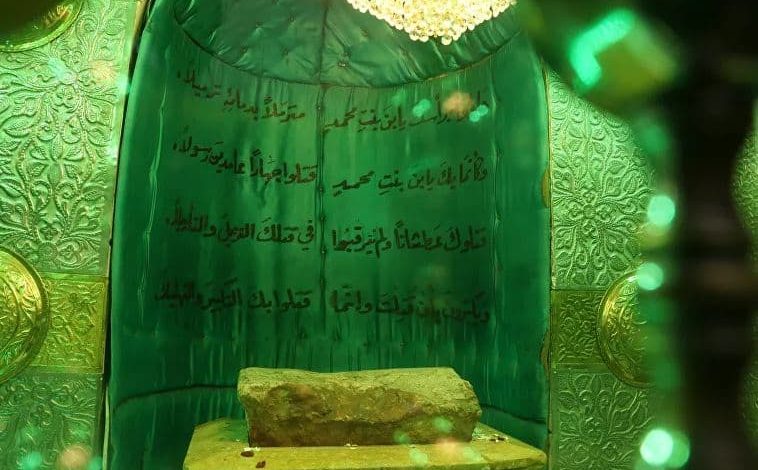 برأسك يابن بنتِ محمدٍ متزملاً بدمائهِ تزميلاً
وكأنما بك يابن بنتِ محمدٍ قتلوا جهاراً عامدين رسولاً
قتلوك عطشاناً ولم يرقبوا في قتلك التنزيل والتأويلا
ويكبرون بأن قتلت وانما قتلوا بك التكبير والتهليلا